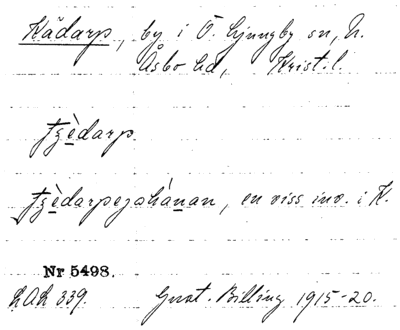 Kädarp, by i Ö. Ljungby sn, N.
Åsbo hd, Krist. l.
tʒèdarp
tʒèdarpejohànan, en viss inv. i K.
Nr 5498.
LAL 339. Gust. Billing 1915-20.